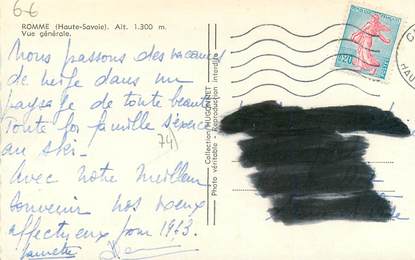 6-6
ROMME (Haute-Savoie). Alt. 1.300 m.
Vue générale.
Nous passons des vacances
de neige dans un
paysage de toute beauté
Toute la famille s'exerce
au ski-
Avec notre meilleur
souvenir nos vœux
affectueux pour 1963.
74)
Collection HUGONNET
Photo véritable - Reproduction interdite
0,20